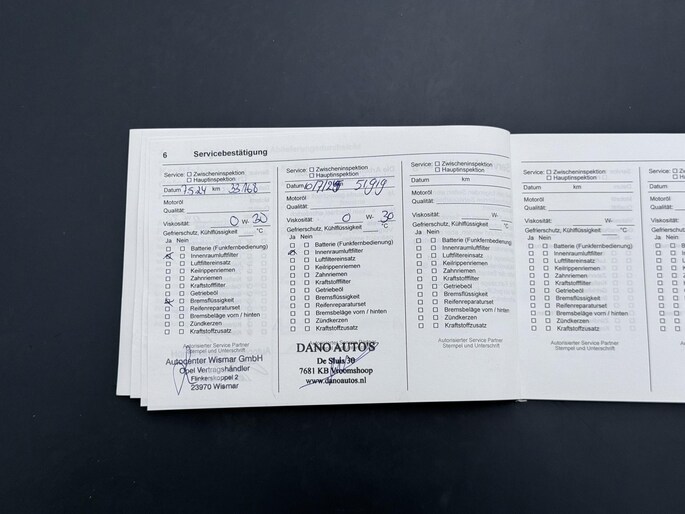 6 Servicebestätigung
Service: Zwischeninspektion
Hauptinspektion
Datum 7524 km 33168
Motoröl
Qualität:
Viskosität: 0 W- 30
Gefrierschutz, Kühlflüssigkeit °C
Ja Nein
Batterie (Funkfernbedienung)
Innenraumluftfilter
Luftfiltereinsatz
Keilrippenriemen
Zahnriemen
Kraftstofffilter
Getriebeöl
Bremsflüssigkeit
Reifenreparaturset
Bremsbeläge vorn / hinten
Zündkerzen
Kraftstoffzusatz
Autocenter Wismar GmbH
Opel Vertragshändler
Flinkerskoppel 2
23970 Wismar
Service: Zwischeninspektion
Hauptinspektion
Datum 10/7/25 51919
Motoröl
Qualität:
Viskosität: 0 W- 30
Gefrierschutz, Kühlflüssigkeit °C
Ja Nein
Batterie (Funkfernbedienung)
Innenraumluftfilter
Luftfiltereinsatz
Keilrippenriemen
Zahnriemen
Kraftstofffilter
Getriebeöl
Bremsflüssigkeit
Reifenreparaturset
Bremsbeläge vorn / hinten
Zündkerzen
Kraftstoffzusatz
DANO AUTO'S
De Sluis 30
7681 KB Vroomshoop
www.danoautos.nl
Service: Zwischeninspektion
Hauptinspektion
Datum km
Motoröl
Qualität:
Viskosität: W-
Gefrierschutz, Kühlflüssigkeit °C
Ja Nein
Batterie (Funkfernbedienung)
Innenraumluftfilter
Luftfiltereinsatz
Keilrippenriemen
Zahnriemen
Kraftstofffilter
Getriebeöl
Bremsflüssigkeit
Reifenreparaturset
Bremsbeläge vorn / hinten
Zündkerzen
Kraftstoffzusatz
Autorisierter Service Partner
Stempel und Unterschrift
Service: Zwischeninspektion
Hauptinspektion
Datum km
Motoröl
Qualität:
Viskosität: W-
Gefrierschutz, Kühlflüssigkeit °C
Ja Nein
Batterie (Funkfernbedienung)
Innenraumluftfilter
Luftfiltereinsatz
Keilrippenriemen
Zahnriemen
Kraftstofffilter
Getriebeöl
Bremsflüssigkeit
Reifenreparaturset
Bremsbeläge vorn / hinten
Zündkerzen
Kraftstoffzusatz
Autorisierter Service Partner
Stempel und Unterschrift